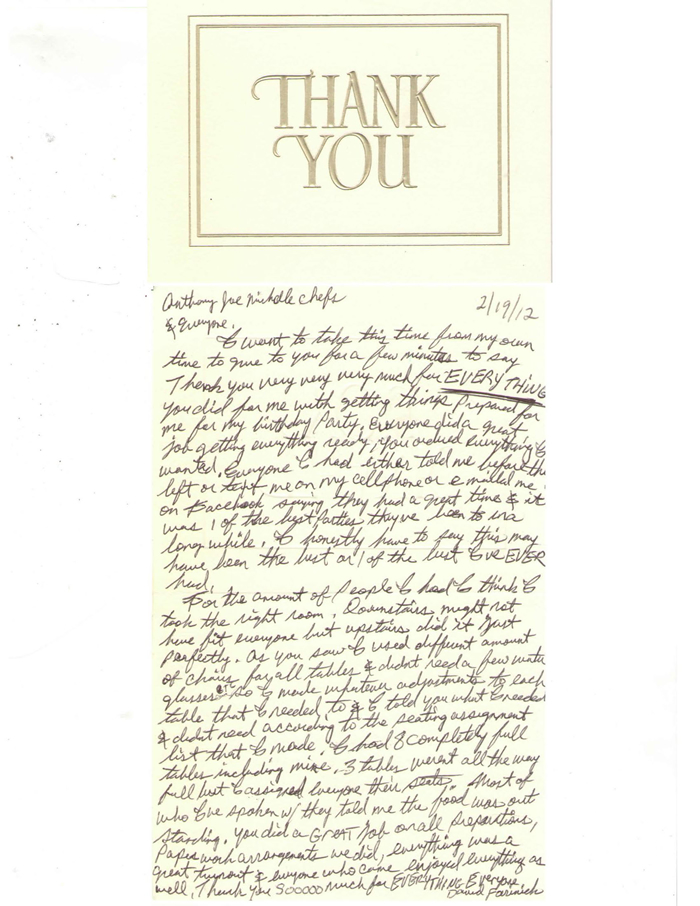 THANK
YOU
Anthony Joe Michelle Chefs
2/19/12
& Everyone.
I want to take this time from my own
time to give to you for a few minutes to say
Thank you very very very much for EVERY THING
you did for me with getting things prepared for
me for my birthday Party. Everyone did a great
job getting everything ready, you ordered everything I
wanted. Everyone I had either told me before they
left or text me on my cellphone or emailed me
on Facebook saying they had a great time & it
was 1 of the best parties they've been to in a
long while. I honestly have to say this may
have been the best or 1 of the best I've EVER
had.
For the amount of People I had I think I
took the right room. Downstairs might not
have fit everyone but upstairs did it just
perfectly. As you saw I used different amount
of chairs for all tables & didnt need a few water
glasses so I made whatever adjustments to each
table that I needed to & I told you what I needed
& didnt need according to the seating assignment
list that I made. I had 8 completely full
tables including mine. 3 tables werent all the way
full but I assigned everyone their seats. Most of
who I've spoken w/ they told me the food was out
standing. You did a GREAT Job on all preparations,
Paperwork arrangements we did, everything was a
great turnout & everyone who came enjoyed everything as
well. Thank you Sooooo much for EVERY THING Everyone
David